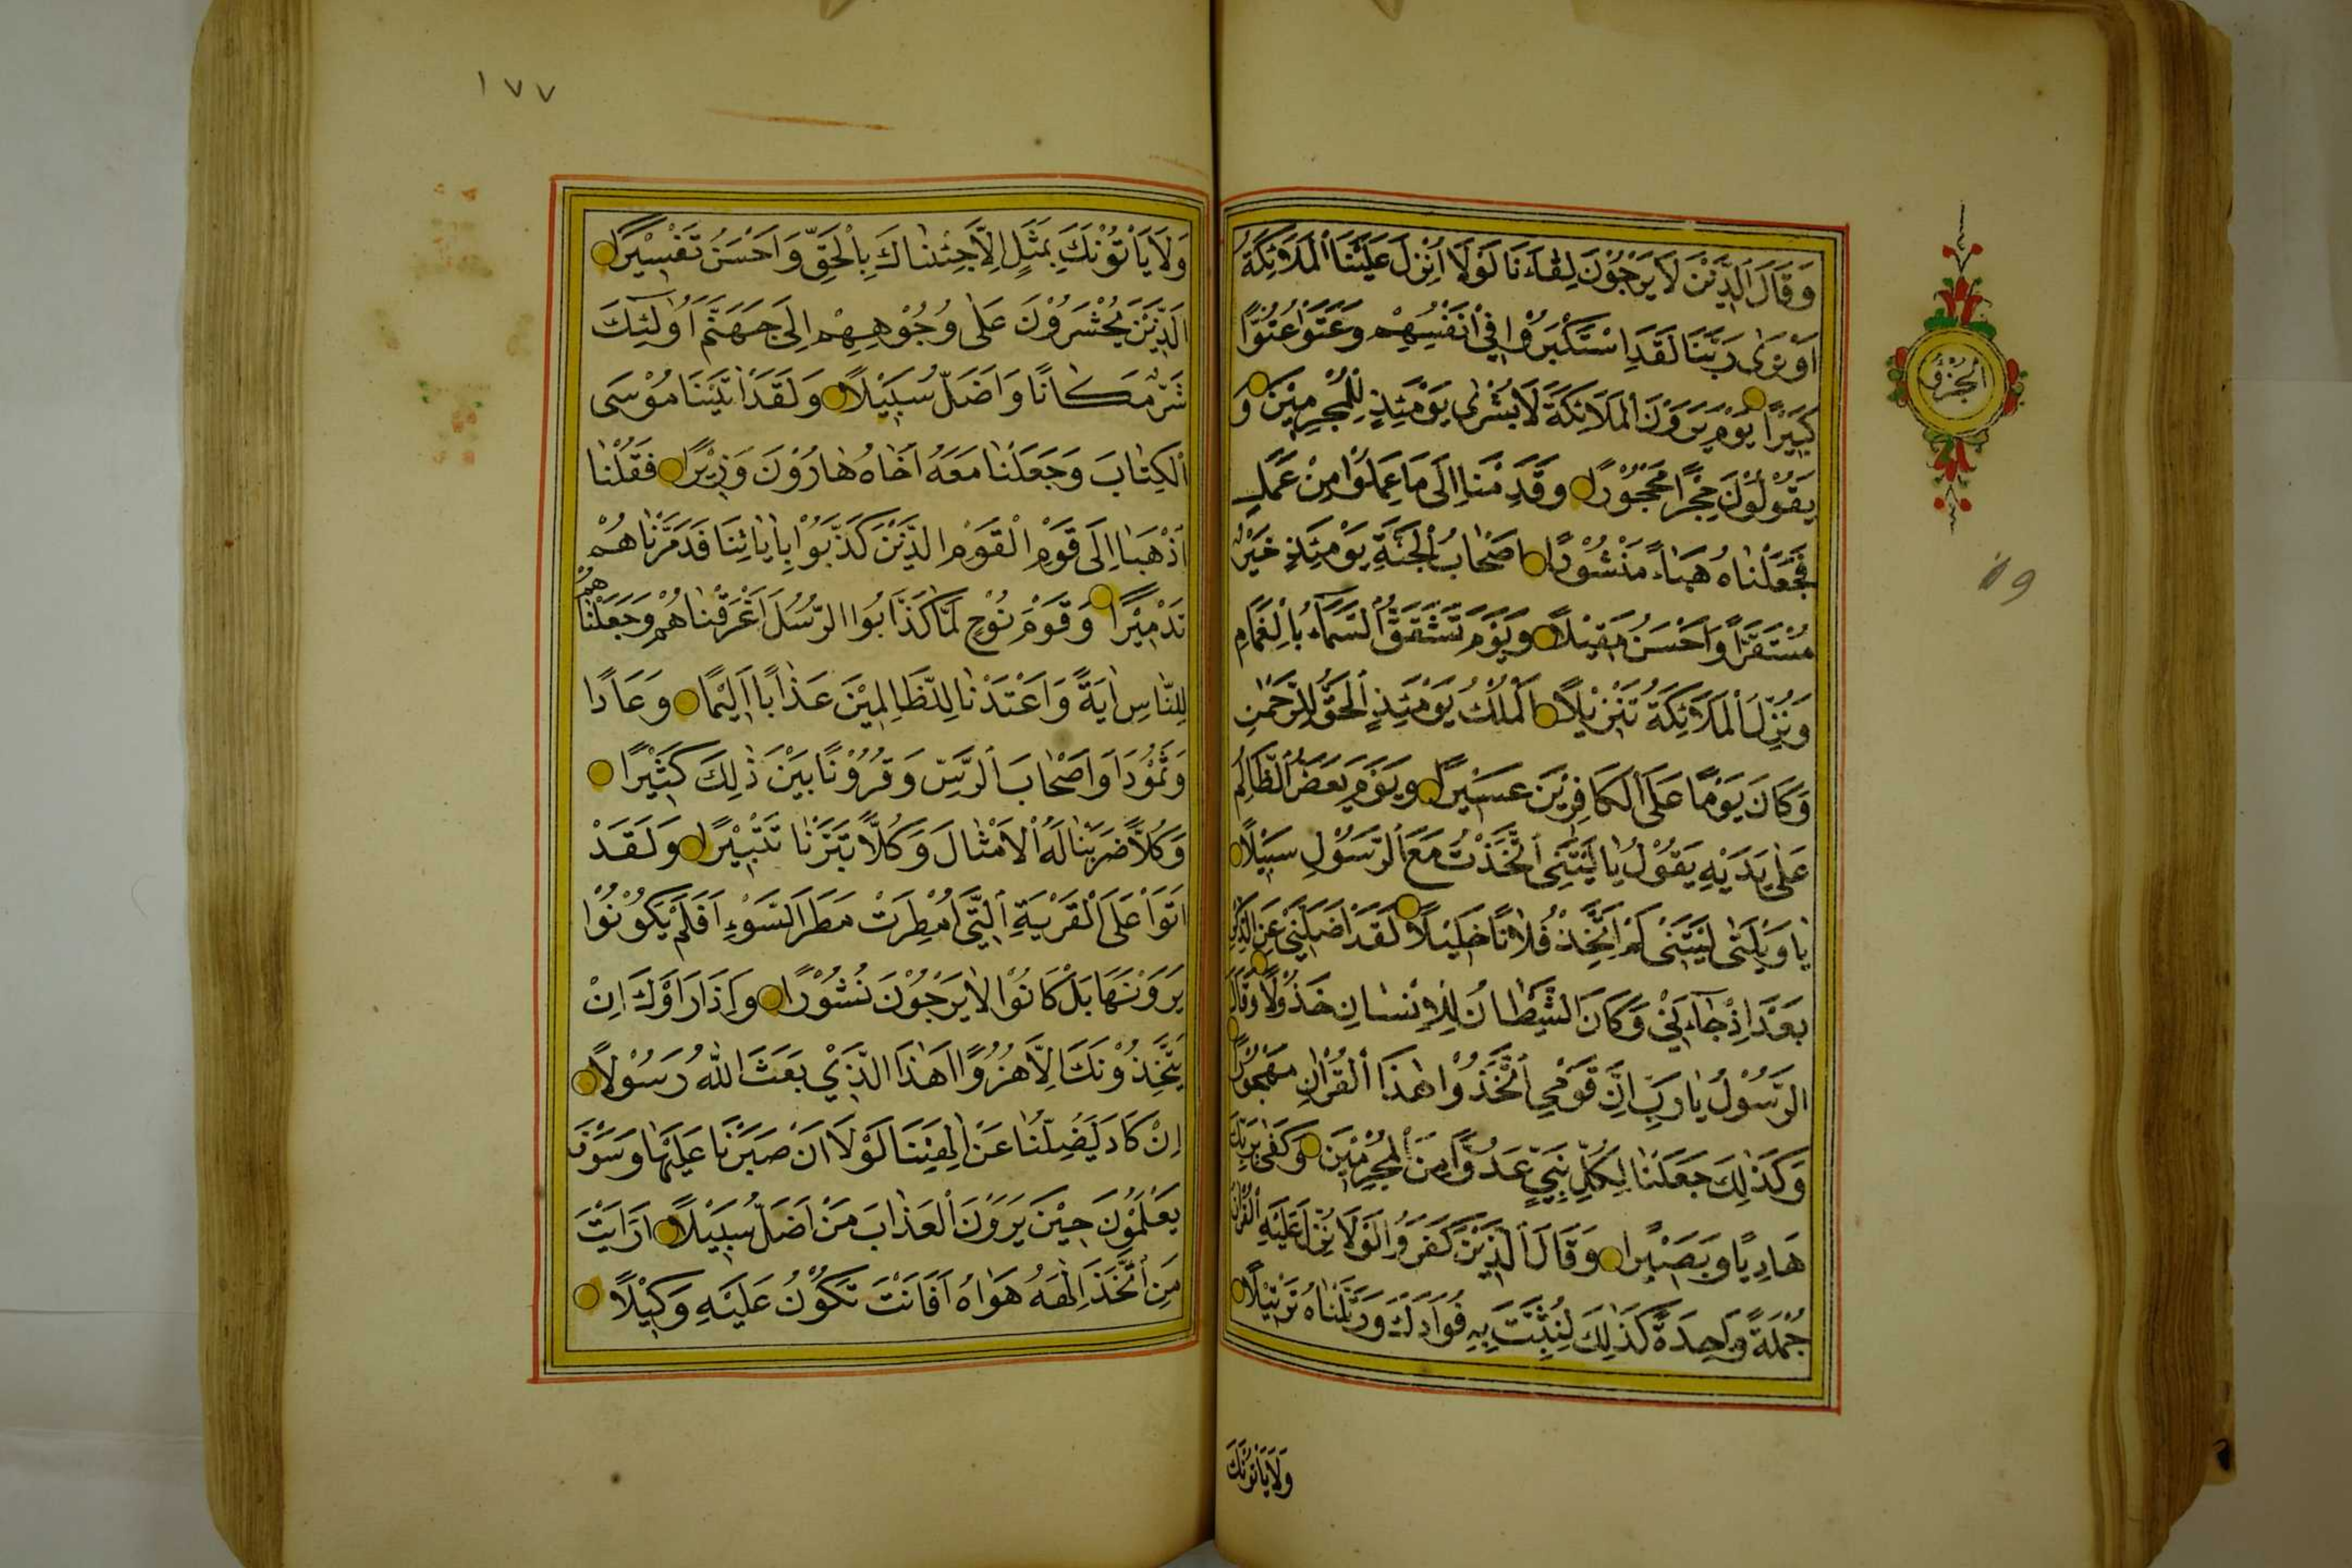 وَقَالَ الَّذِيْنَ لَا يَرْجُوْنَ لِقَاءَنَا لَوْلَا اُنْزِلَ عَلَيْنَا الْمَلَائِكَةُ
اَوْ نَرٰى رَبَّنَا لَقَدِ اسْتَكْبَرُوْا فِيْ اَنْفُسِهِمْ وَعَتَوْا عُتُوًّا
كَبِيْرًا يَوْمَ يَرَوْنَ الْمَلَائِكَةَ لَا بُشْرٰى يَوْمَئِذٍ لِلْمُجْرِمِيْنَ وَ
يَقُوْلُوْنَ حِجْرًا مَحْجُوْرًا وَقَدِمْنَا اِلٰى مَا عَمِلُوْا مِنْ عَمَلٍ
فَجَعَلْنَاهُ هَبَاءً مَنْثُوْرًا اَصْحَابُ الْجَنَّةِ يَوْمَئِذٍ خَيْرٌ
مُسْتَقَرًّا وَاَحْسَنُ مَقِيْلًا وَيَوْمَ تَشَقَّقُ السَّمَاءُ بِالْغَمَامِ
وَنُزِّلَ الْمَلَائِكَةُ تَنْزِيْلًا اَلْمُلْكُ يَوْمَئِذٍ الْحَقُّ لِلرَّحْمٰنِ
وَكَانَ يَوْمًا عَلَى الْكَافِرِيْنَ عَسِيْرًا وَيَوْمَ يَعَضُّ الظَّالِمُ
عَلٰى يَدَيْهِ يَقُوْلُ يَا لَيْتَنِى اتَّخَذْتُ مَعَ الرَّسُوْلِ سَبِيْلًا
يَا وَيْلَتٰى لَيْتَنِىْ لَمْ اَتَّخِذْ فُلَانًا خَلِيْلًا لَقَدْ اَضَلَّنِىْ عَنِ الذِّكْرِ
بَعْدَ اِذْ جَاءَنِيْ وَكَانَ الشَّيْطَانُ لِلْاِنْسَانِ خَذُوْلًا وَقَالَ
الرَّسُوْلُ يَا رَبِّ اِنَّ قَوْمِي اتَّخَذُوْا هٰذَا الْقُرْاٰنَ مَهْجُوْرًا
وَكَذٰلِكَ جَعَلْنَا لِكُلِّ نَبِيٍّ عَدُوًّا مِنَ الْمُجْرِمِيْنَ وَكَفٰى بِرَبِّكَ
هَادِيًا وَبَصِيْرًا وَقَالَ الَّذِيْنَ كَفَرُوْا لَوْلَا نُزِّلَ عَلَيْهِ الْقُرْاٰنُ
جُمْلَةً وَاحِدَةً كَذٰلِكَ لِنُثَبِّتَ بِهِ فُوَادَكَ وَرَتَّلْنَاهُ تَرْتِيْلًا
وَلَا يَاْتُوْنَكَ
الجزؤ
١٩
١٧٧
وَلَا يَاْتُوْنَكَ بِمَثَلٍ اِلَّا جِئْنَاكَ بِالْحَقِّ وَاَحْسَنَ تَفْسِيْرًا
اَلَّذِيْنَ يُحْشَرُوْنَ عَلٰى وُجُوْهِهِمْ اِلٰى جَهَنَّمَ اُولٰئِكَ
شَرٌّ مَكَانًا وَاَضَلُّ سَبِيْلًا وَلَقَدْ اٰتَيْنَا مُوْسَى
الْكِتَابَ وَجَعَلْنَا مَعَهُ اَخَاهُ هَارُوْنَ وَزِيْرًا فَقُلْنَا
اذْهَبَا اِلَى قَوْمِ الْقَوْمِ الَّذِيْنَ كَذَّبُوْا بِاٰيَاتِنَا فَدَمَّرْنَاهُمْ
تَدْمِيْرًا وَقَوْمَ نُوْحٍ لَمَّا كَذَّبُوا الرُّسُلَ اَغْرَقْنَاهُمْ وَجَعَلْنَاهُمْ
لِلنَّاسِ اٰيَةً وَاَعْتَدْنَا لِلظَّالِمِيْنَ عَذَابًا اَلِيْمًا وَعَادًا
وَثَمُوْدَا وَاَصْحَابَ الرَّسِّ وَقُرُوْنًا بَيْنَ ذٰلِكَ كَثِيْرًا
وَكُلًّا ضَرَبْنَا لَهُ الْاَمْثَالَ وَكُلًّا تَبَّرْنَا تَتْبِيْرًا وَلَقَدْ
اَتَوْا عَلَى الْقَرْيَةِ الَّتِى اُمْطِرَتْ مَطَرَ السَّوْءِ اَفَلَمْ يَكُوْنُوْا
يَرَوْنَهَا بَلْ كَانُوْا لَا يَرْجُوْنَ نُشُوْرًا وَاِذَا رَاَوْكَ اِنْ
يَتَّخِذُوْنَكَ اِلَّا هُزُوًا اَهٰذَا الَّذِيْ بَعَثَ اللهُ رَسُوْلًا
اِنْ كَادَ لَيُضِلُّنَا عَنْ اٰلِهَتِنَا لَوْلَا اَنْ صَبَرْنَا عَلَيْهَا وَسَوْفَ
يَعْلَمُوْنَ حِيْنَ يَرَوْنَ الْعَذَابَ مَنْ اَضَلُّ سَبِيْلًا اَرَاَيْتَ
مَنِ اتَّخَذَ اِلٰهَهُ هَوَاهُ اَفَاَنْتَ تَكُوْنُ عَلَيْهِ وَكِيْلًا